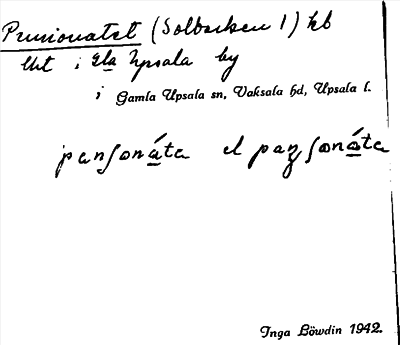 Pensionatet (Solbacken 1) hb
litt i Gla Upsala by
i Gamla Upsala sn, Vaksala hd, Upsala l.
panſonáta el paŋſonáta
Inga Löwdin 1942.